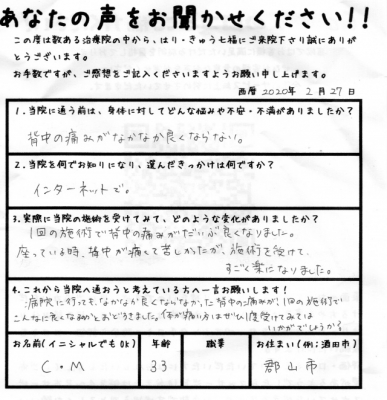 あなたの声をお聞かせください!!
この度は数ある治療院の中から、はり・きゅう七福にご来院下さり誠にありが
とうございます。
お手数ですが、ご感想をご記入くださいますようお願い申し上げます。
西暦 2020年 2月 27日
1.当院に通う前は、身体に対してどんな悩みや不安・不満がありましたか?
背中の痛みがなかなか良くならない。
2.当院を何でお知りになり、選んだきっかけは何ですか?
インターネットで。
3.実際に当院の施術を受けてみて、どのような変化がありましたか?
1回の施術で背中の痛みがだいぶ良くなりました。
座っている時、背中が痛くて苦しかったが、施術を受けて、
すごく楽になりました。
4.これから当院へ通おうと考えている方へ一言お願いします!
病院に行っても、なかなか良くならなかった背中の痛みが、1回の施術で
こんなに良くなるのかとおどろきました。体が痛い方はぜひ1度受けてみては
いかがでしょうか。
お名前(イニシャルでもOK) 年齢 職業 お住まい(例:酒田市)
C・M 33 郡山市